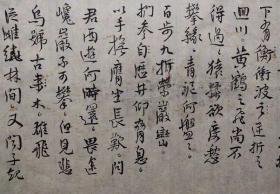 下有衡衝波之逆折之
回川黃鶴之飛尚不
得過猿猱欲度愁
攀緣青泥何盤盤
百步九折縈巖巒
捫參歷井仰脅息
以手撫膺坐長歎問
君西遊何時還畏途
巉巖不可攀但見悲
鳥號古木雄飛
從雌繞林間又聞子規